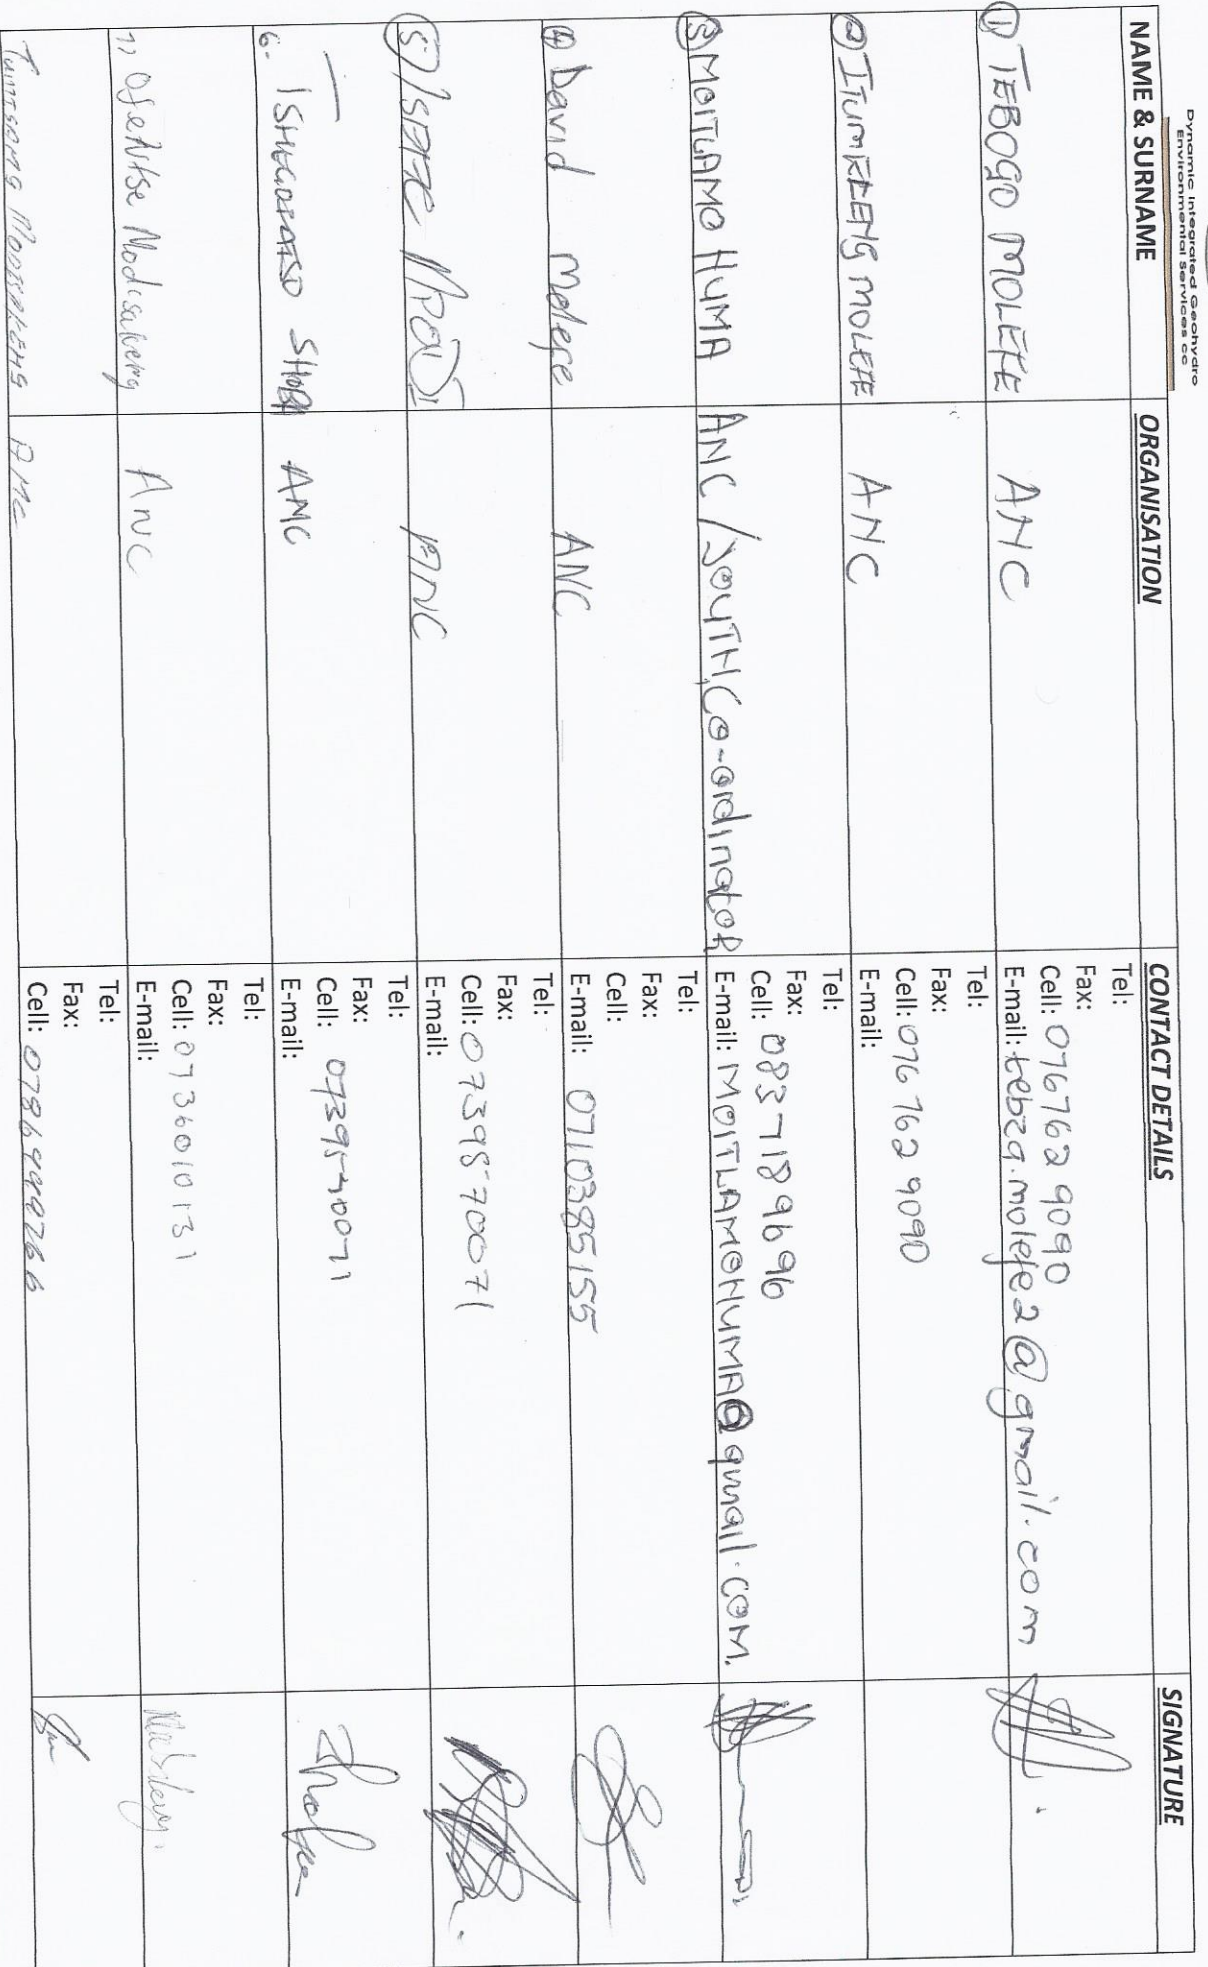 Dynamic Integrated Geohydro
Environmental Services cc
NAME & SURNAME ORGANISATION CONTACT DETAILS SIGNATURE
① TEBOGO MOLEFE ANC
Tel:
Fax:
Cell: 076762 9090
E-mail: tebza.molefe2@gmail.com
② ITUMELENG MOLEFE ANC
Tel:
Fax:
Cell: 076 762 9090
E-mail:
③ MOITLAMO HUMA ANC/YOUTH, CO-ordinatoR
Tel:
Fax:
Cell: 083 718 9696
E-mail: MOITLAMOHUMA@gmail.com.
④ David Molefe ANC
Tel:
Fax:
Cell:
E-mail: 0710385155
⑤ ANC
Tel:
Fax:
Cell: 0739570071
E-mail:
6. ANC
Tel:
Fax:
Cell: 0739570071
E-mail:
7) Ofentse Modisakeng ANC
Tel:
Fax:
Cell: 0736010131
E-mail:
Tel:
Fax:
Cell: